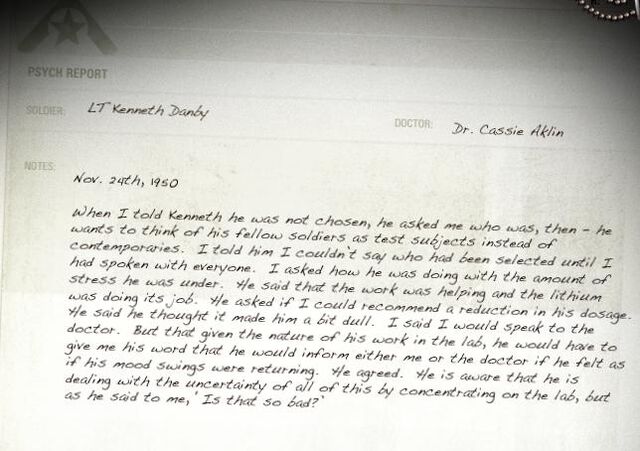 PSYCH REPORT
SOLDIER: LT Kenneth Danby
DOCTOR: Dr. Cassie Aklin
NOTES:
Nov. 24th, 1950
When I told Kenneth he was not chosen, he asked me who was, then - he
wants to think of his fellow soldiers as test subjects instead of
contemporaries. I told him I couldn't say who had been selected until I
had spoken with everyone. I asked how he was doing with the amount of
stress he was under. He said that the work was helping and the lithium
was doing its job. He asked if I could recommend a reduction in his dosage.
He said he thought it made him a bit dull. I said I would speak to the
doctor. But that given the nature of his work in the lab, he would have to
give me his word that he would inform either me or the doctor if he felt as
if his mood swings were returning. He agreed. He is aware that he is
dealing with the uncertainty of all of this by concentrating on the lab, but
as he said to me,' Is that so bad?'